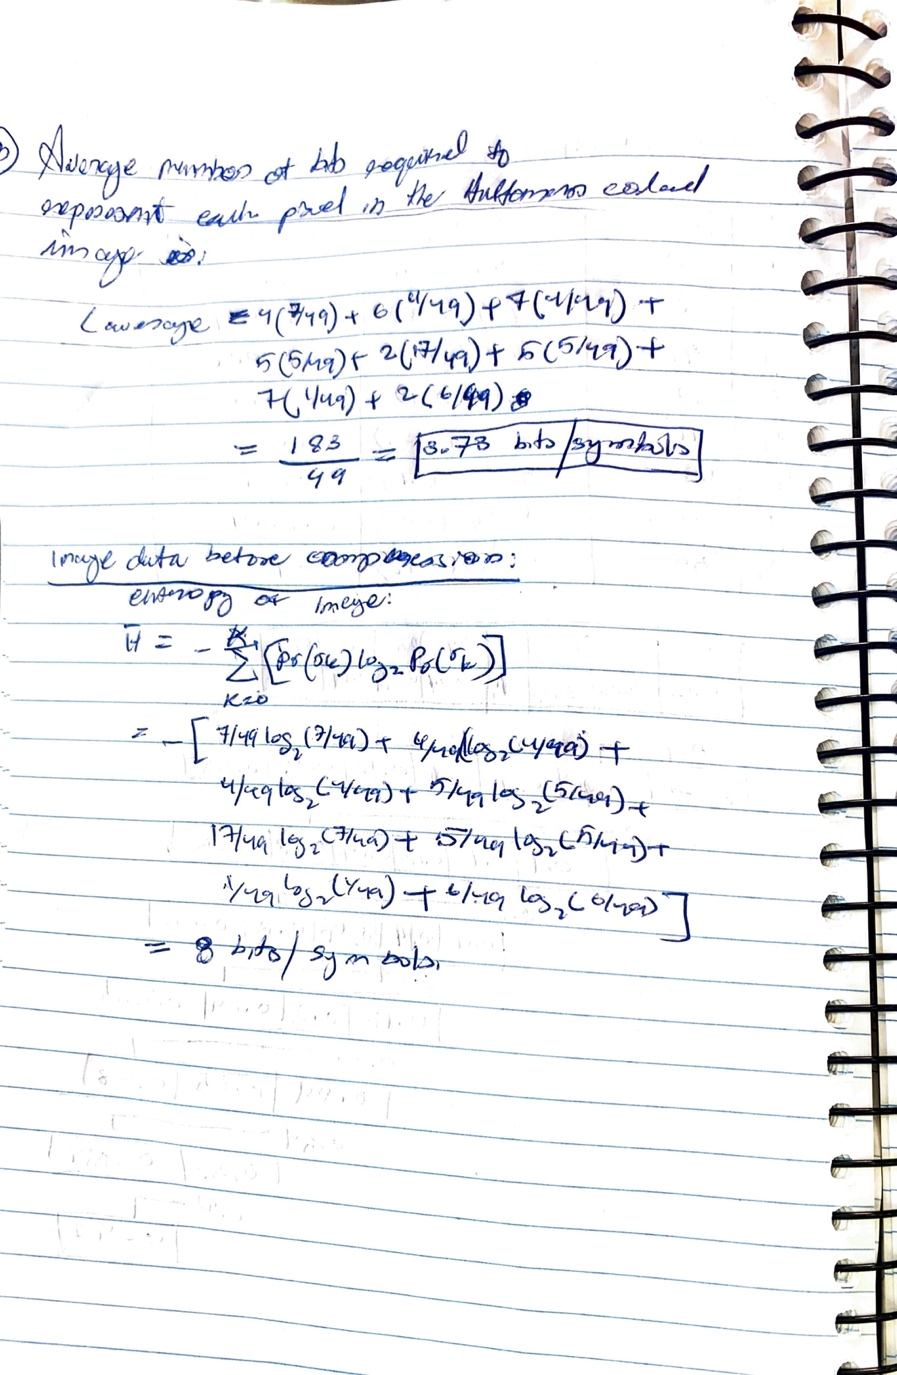 b) Average number of bits required to
represent each pixel in the Huffman coded
image is:
Laverage = 4(7/49) + 6(4/49) + 7(4/49) +
5(5/49) + 2(17/49) + 5(5/49) +
7(1/49) + 2(6/49)
= 183/49 = 3.73 bits/symbols
Image data before compression:
entropy of image:
H = - Σ [Pr(rk) log2 Pr(rk)]
K=0
= -[7/49 log2(7/49) + 4/49 log2(4/49) +
4/49 log2(4/49) + 5/49 log2(5/49) +
17/49 log2(7/49) + 5/49 log2(5/49) +
1/49 log2(1/49) + 6/49 log2(6/49)]
= 8 bits/symbols.